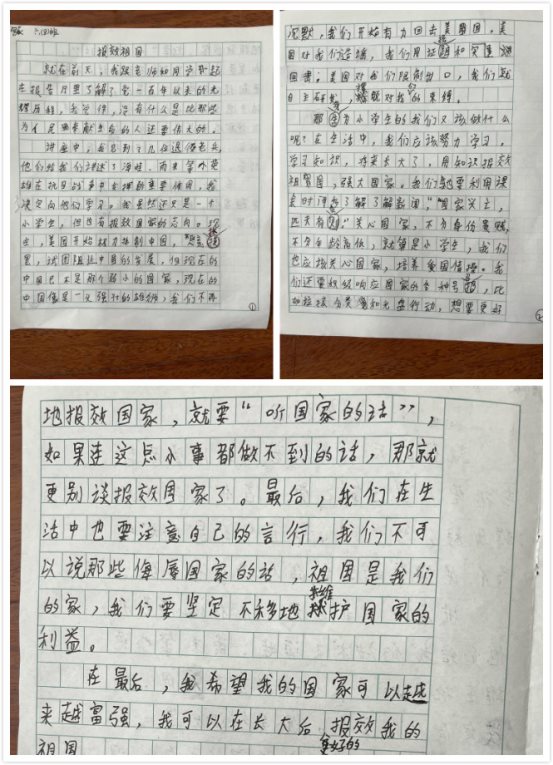 报效祖国
就在前天，我跟老师和同学一起
去报告厅里了解了党一百年以来的光
辉历程，我觉得，没有什么是比那些
为了民族奉献生命的人还要伟大的。
讲座中，我见到了几位退伍老兵，
他们给我们讲述了海娃、雨来等小英
雄在抗日战争中发挥的重要作用，我
决定向他们学习。我虽然还只是一个
小学生，但也有报效国家的志向。现
在，美国开始
里，试图阻止中国的发展，但现在的
中国已不是那个弱小的国家，现在的
中国像是一只强壮的雄狮，我们不再
①
沉默，我们开始有力回击美国。美
国对我们造谣，我们用证据和实事
国家。美国对我们限制出口，我们就
自主研发，摆脱对我的束缚。
那作为小学生的我们又该做什么
呢？在生活中，我们应该努力学习，
学习知识，将来长大了，用知识报效
祖国，强大国家。我们也要利用课
余时间去了解了解新闻，“国家兴亡，
匹夫有责。”关心国家，不分身份贵贱，
不分年龄高低，就算是小学生，我们
也应该关心国家，培养爱国情怀。我
们还要积极响应国家的各种号召，比
如垃圾分类和光盘行动，想要更好
②
地报效国家，就要“听国家的话”，
如果连这点小事都做不到的话，那就
更别谈报效国家了。最后，我们在生
活中也要注意自己的言行，我们不可
以说那些侮辱国家的话，祖国是我们
的家，我们要坚定不移地维护国家的
利益。
在最后，我希望我的国家可以越
来越富强，我可以在长大后报效我的
更好的
祖国